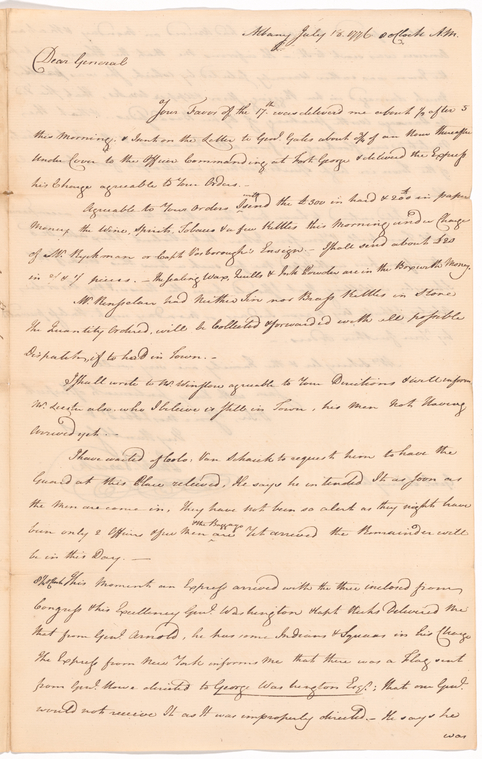 Albany July 18. 1776 oClock A.M.
Dear General
Your Favor of the 17th. was delivered me about ½ after 5
this Morning, & Sent on the Letter to Genl. Gates about ¾ of an Hour thereafter
Under Cover to the Officer Commanding at Fort George & delivered the Express
his Charge agreeable to Your Orders. –
Agreable to Your Orders I send with the £300 in hard & 200 in paper
Money, the Wine, Spirits, Tobacco & a few Kettles this Morning under Charge
of Mr. Ryckman or Capt Vosborough's Ensign – I shall send about £20
in and pieces. – the sealing Wax, Quills & Ink Powder are in the Box with Money
Mr. Renselaer had Neither Tin nor Brass Kettles in Store
The Quantity Ordered, will be Collected & forwarded with all possible
Dispatch, if to be had in Town. –
I shall write to Mr. Winslow agreable to Your Directions & will inform
Mr. also, who I believe is still in Town, his Men Not Having
Arrived yet. –
I have waited of Colo. Van Schaick to request him to have the
Guard at this Place releived, He says he intended It as soon as
the Men are come in, They have Not been so alert as they might have
been only 2 Officers & few Men & the Baggage are Yet arrived the Remainder will
be in this Day. —
This Moment an Express arrived with the three inclosed from
Congress & his Excellency Genl. Washington & Capt delivered Me
that from Genl Arnold, he has some Indians & Squaas in his Charge
The Express from New York informs Me that there was a Flag sent
from Genl. Howe directed to George Washington Esqr.; that our Genl.
would not receive It as It was improperly directed – He says he
was